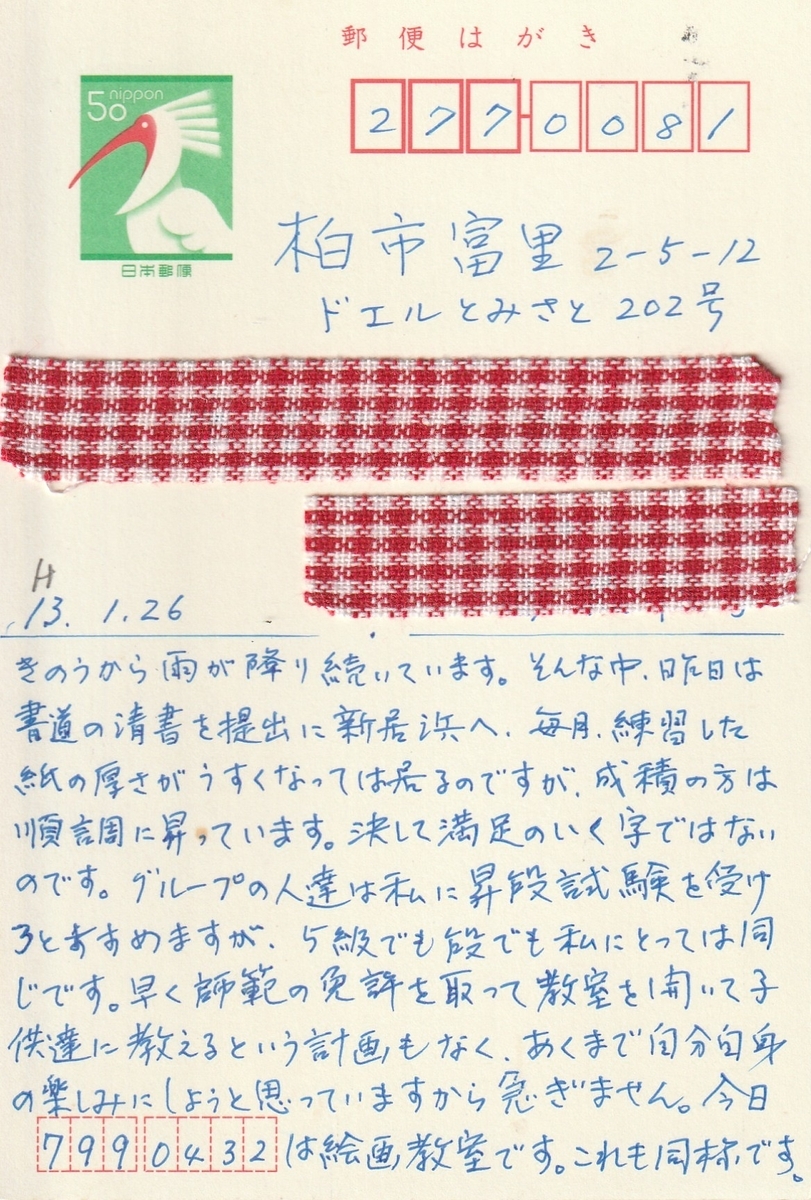 郵便はがき
50 nippon
日本郵便
277-0081
柏市富里 2-5-12
ドエルとみさと 202号
H
13. 1. 26
きのうから雨が降り続いています。そんな中、昨日は
書道の清書を提出に新居浜へ、毎月、練習した
紙の厚さがうすくなっては居るのですが、成積の方は
順調に昇っています。決して満足のいく字ではない
のです。グループの人達は私に昇段試験を受け
ろとすすめますが、5級でも段でも私にとっては同
じです。早く師範の免許を取って教室を開いて子
供達に教えるという計画もなく、あくまで自分自身
の楽しみにしようと思っていますから急ぎません。今日
7990432 は絵画教室です。これも同様です。